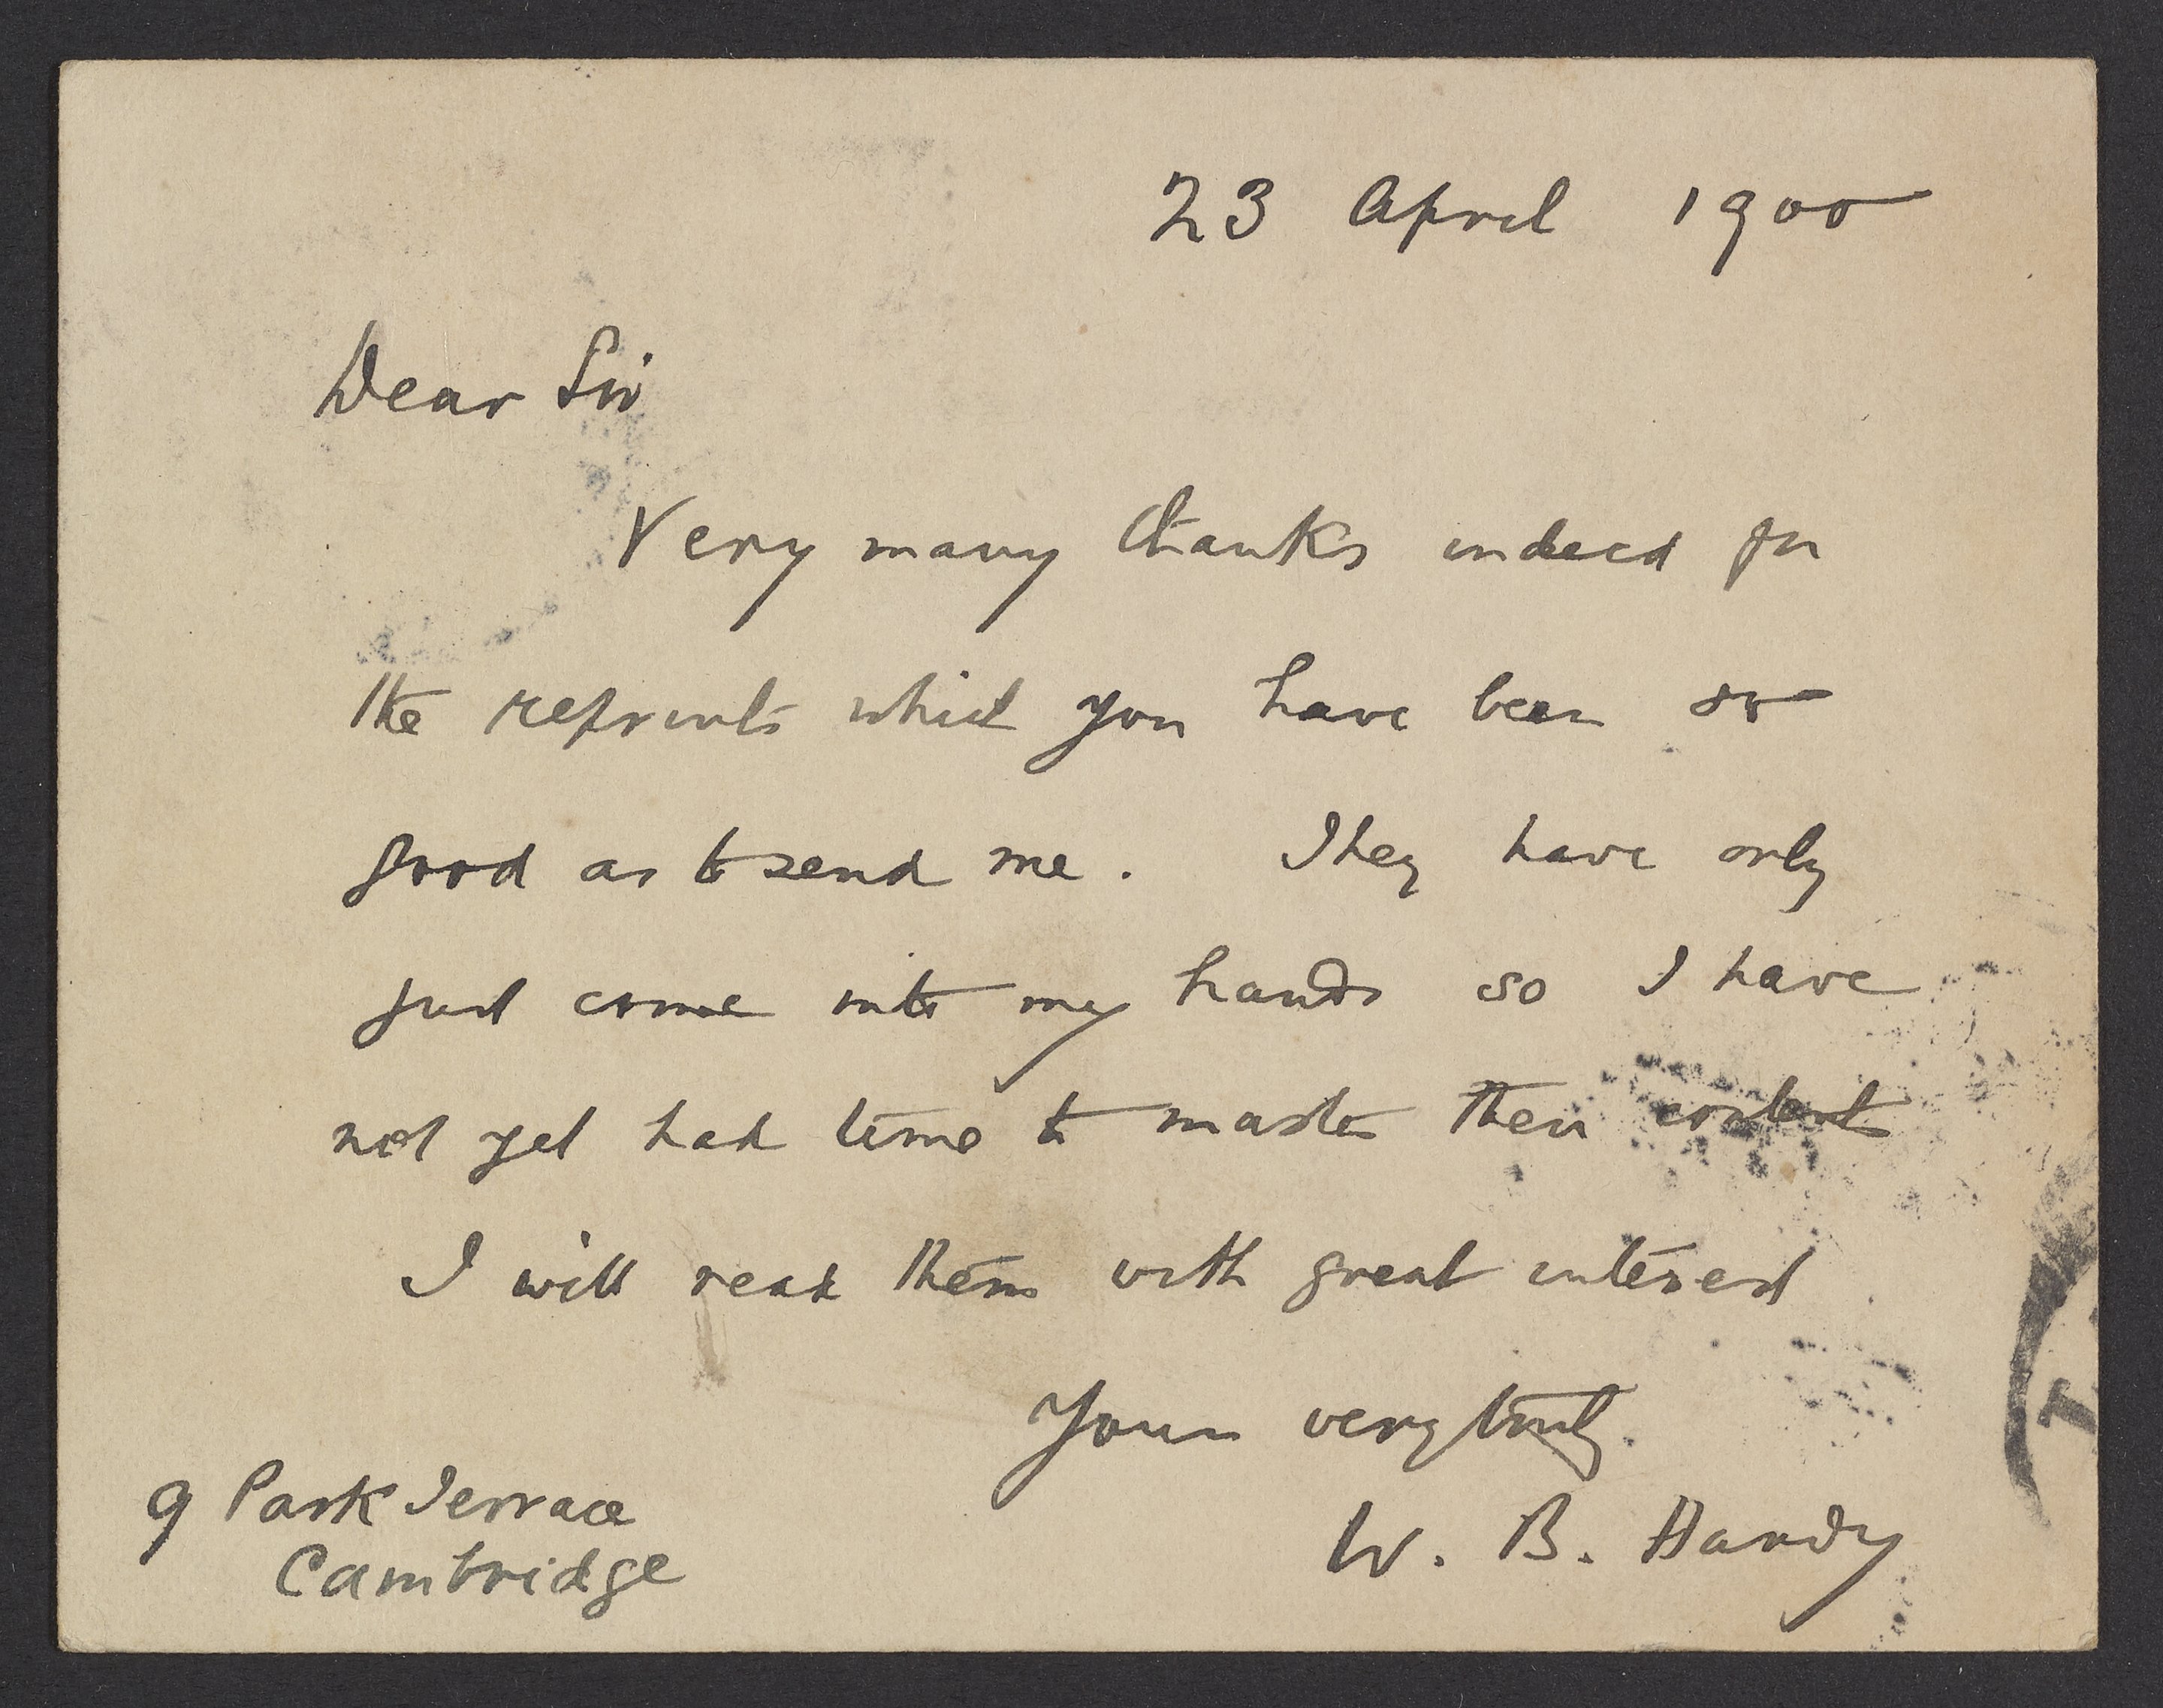 23 April 1900
Dear Sir
Very many thanks indeed for
the reprints which you have been so
good as to send me. They have only
just come into my hands so I have
not yet had time to master their content
I will read them with great interest
Yours very truly.
W. B. Hardy
9 Park Terrace
Cambridge